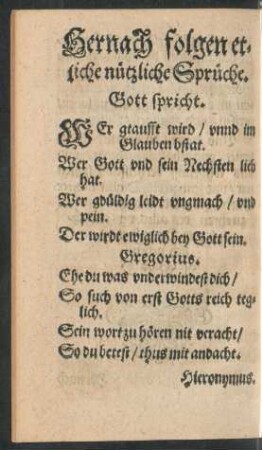 Hernach folgen et-
liche nützliche Sprüche.
Gott spricht.
WEr gtaufft wird / vnnd im
Glauben bstat.
Wer Gott vnd sein Nechsten lieb
hat.
Wer gdüldig leidt vngmach / vnd
pein.
Der wirdt ewiglich bey Gott sein.
Gregorius.
Ehe du was vnderwindest dich /
So such von erst Gotts reich teg-
lich.
Sein wort zu hören nit veracht /
So du betest / thus mit andacht.
Hieronymus.